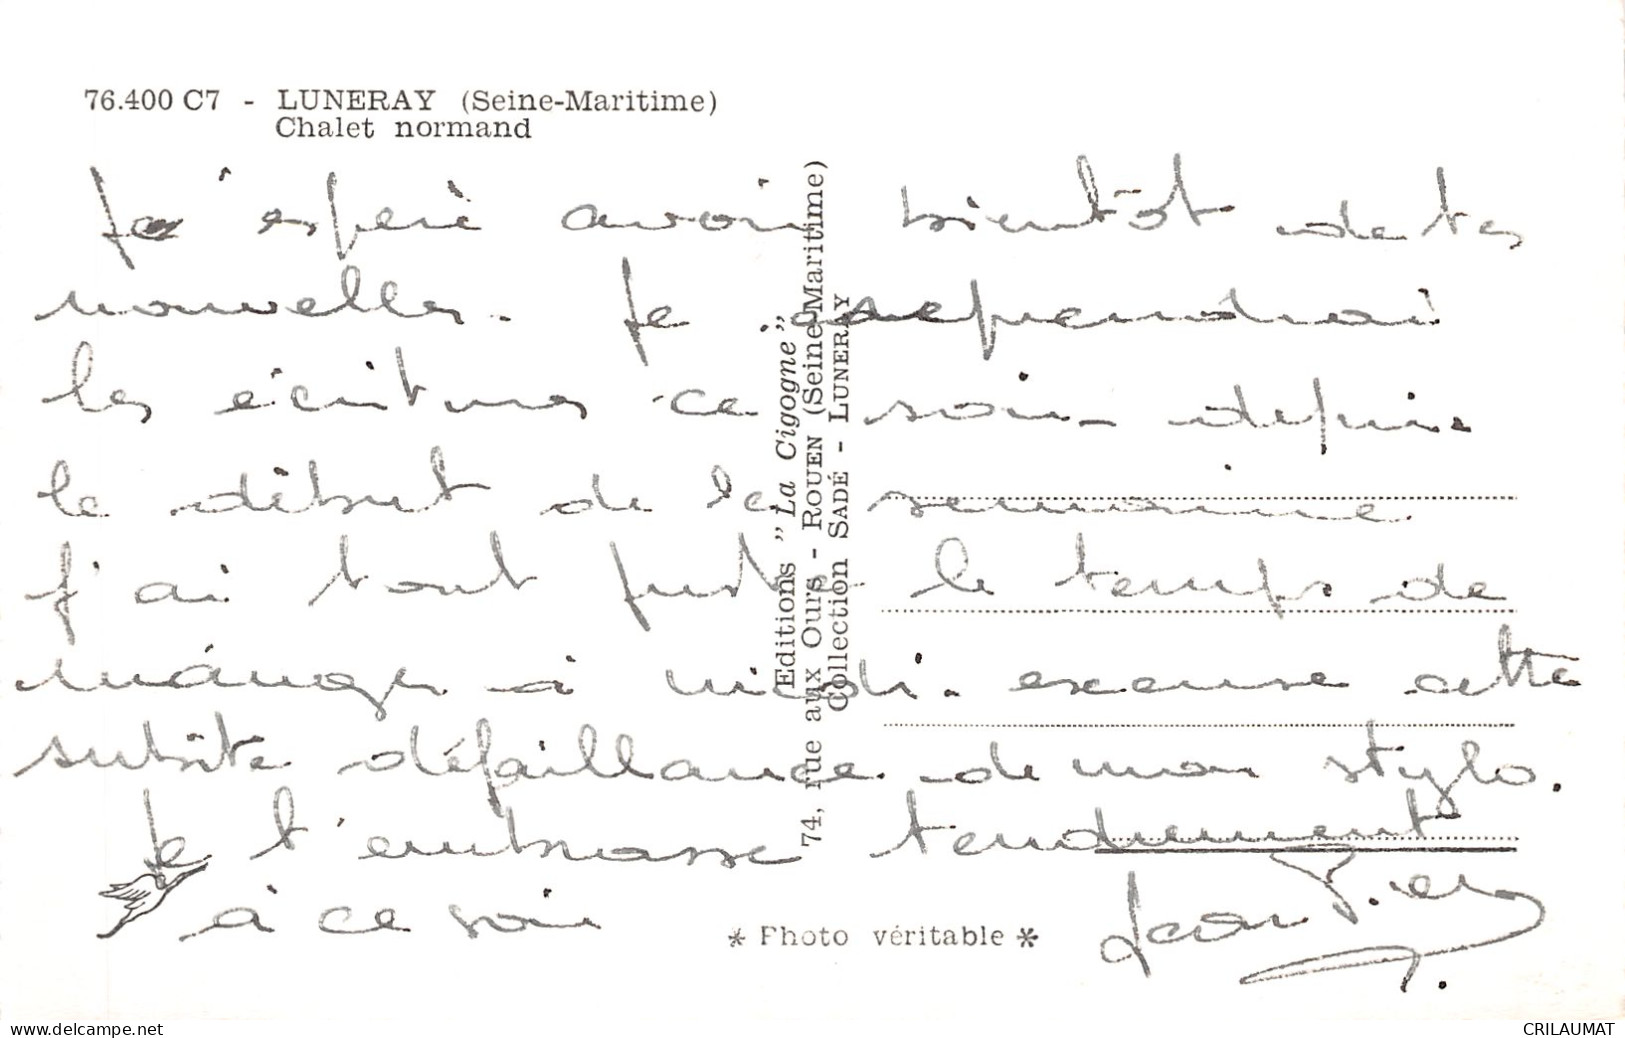 76.400 C7 - LUNERAY (Seine-Maritime)
Chalet normand
J'espère avoir bientôt de tes
nouvelles. Je reprendrai
les écritures ce soir. depuis
le début de la semaine
j'ai tout juste le temps de
manger à midi. excuse cette
subite défaillance de mon stylo.
Je t'embrasse tendrement
à ce soir
Jean Pierre
Editions "La Cigogne"
74, rue aux Ours - ROUEN (Seine-Maritime)
Collection SADÉ - LUNERAY
* Photo véritable *
www.delcampe.net
CRILAUMAT